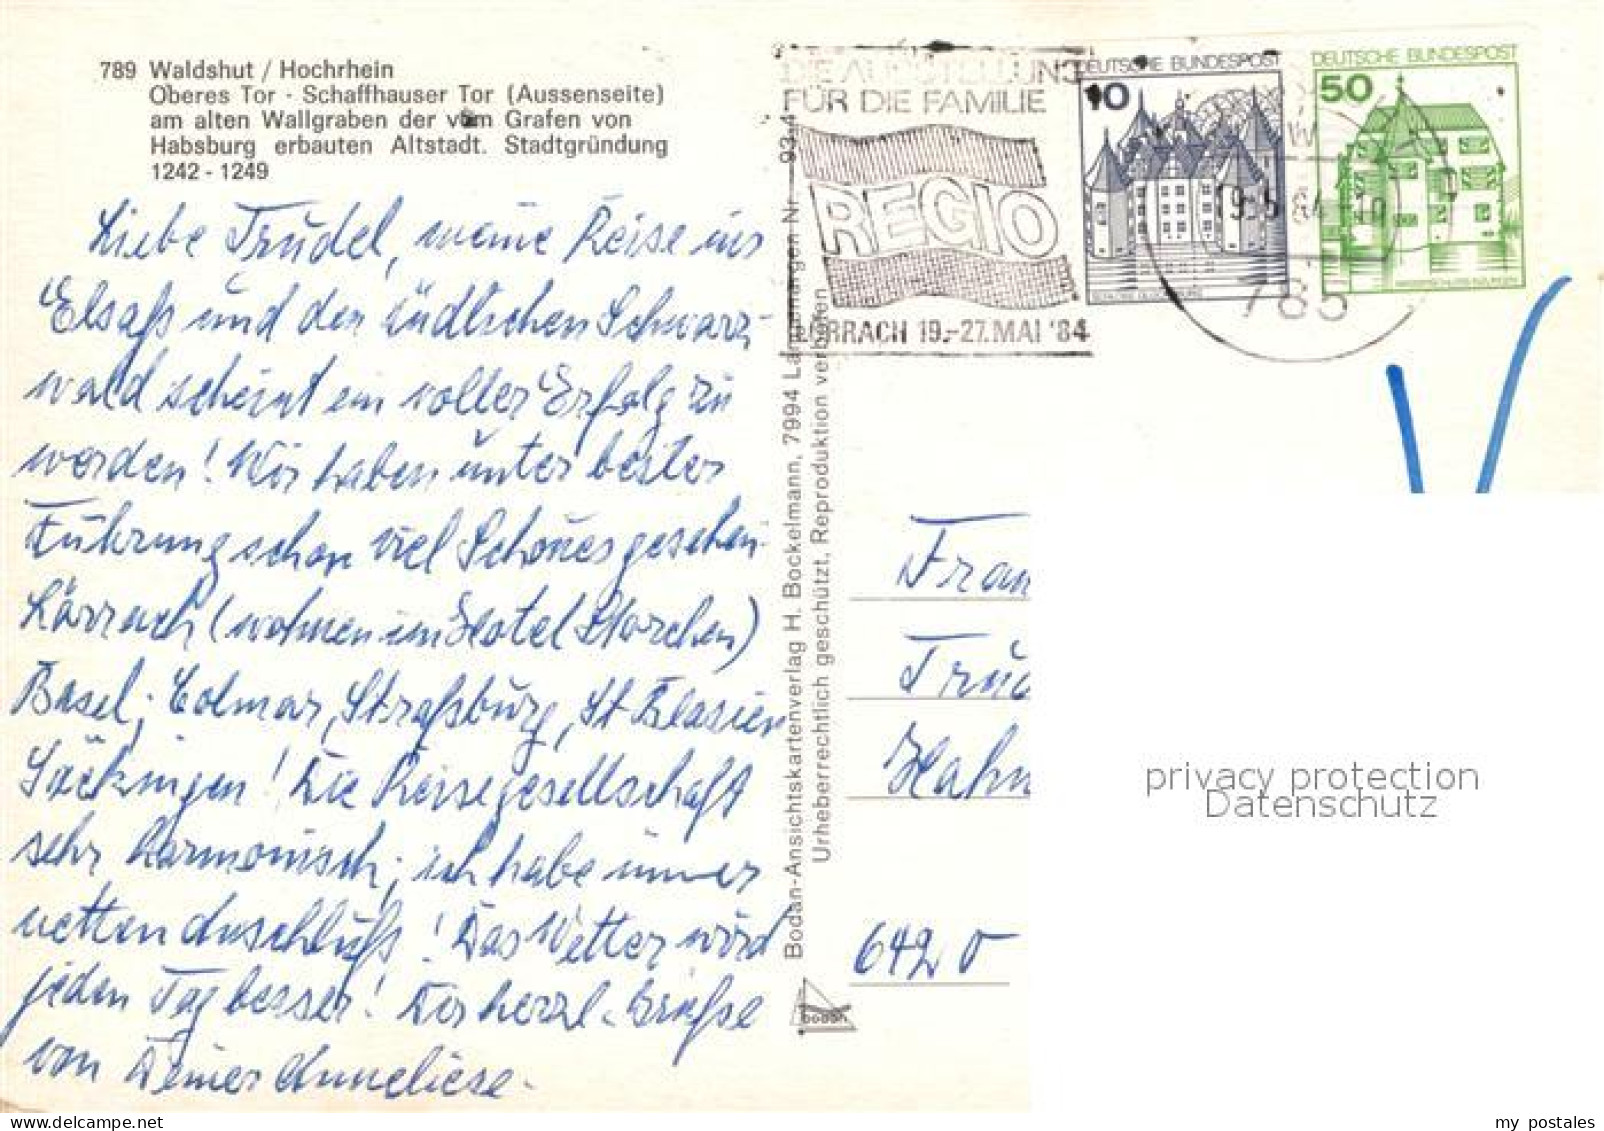 789 Waldshut / Hochrhein
Oberes Tor - Schaffhauser Tor (Aussenseite)
am alten Wallgraben der vom Grafen von
Habsburg erbauten Altstadt. Stadtgründung
1242 - 1249
Liebe Trudel, meine Reise ins
Elsaß und den südlichen Schwarz-
wald scheint ein voller Erfolg zu
werden! Wir haben unter bester
Führung schon viel Schönes gesehen.
Lörrach (wohnen im Hotel Storchen)
Basel, Colmar, Straßburg, St Blasien
Säckingen! Die Reisegesellschaft
sehr harmonisch; ich habe immer
netten Anschluß! Das Wetter wird
jeden Tag besser! Dir herzl. Grüße
von Deiner Anneliese.
Bodan-Ansichtskartenverlag H. Bockelmann, 7994 Langenargen Nr. 93-4
Urheberrechtlich geschützt. Reproduktion verboten
bodan
DIE AUSSTELLUNG
FÜR DIE FAMILIE
REGIO
LÖRRACH 19.-27. MAI '84
DEUTSCHE BUNDESPOST
10
DEUTSCHE BUNDESPOST
50
785
Frau
Trud
Hahn
6420
privacy protection
Datenschutz
www.delcampe.net
my_postales